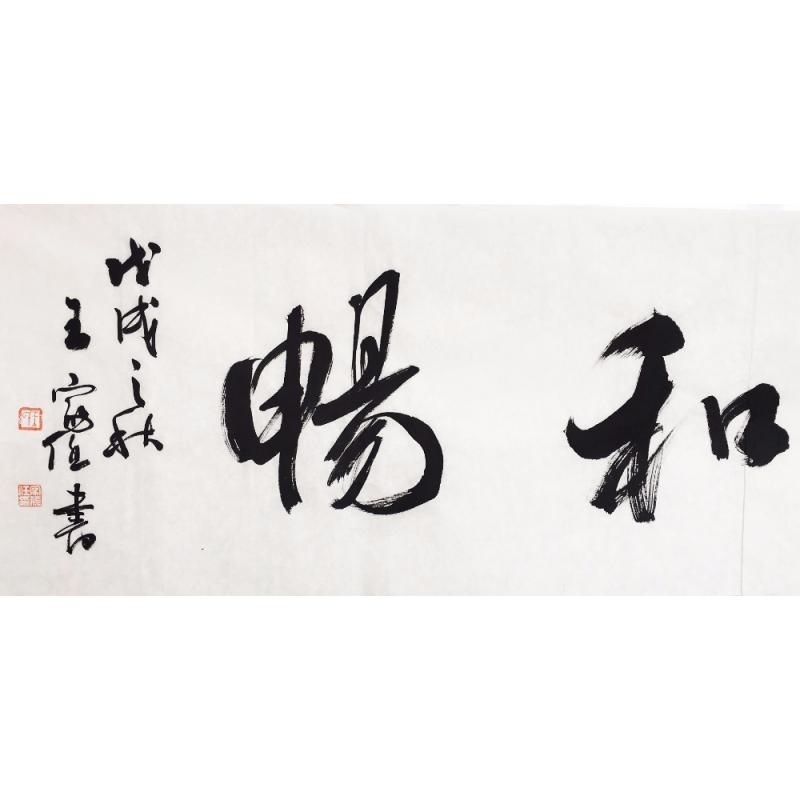 和暢
戊戌之秋
王 書